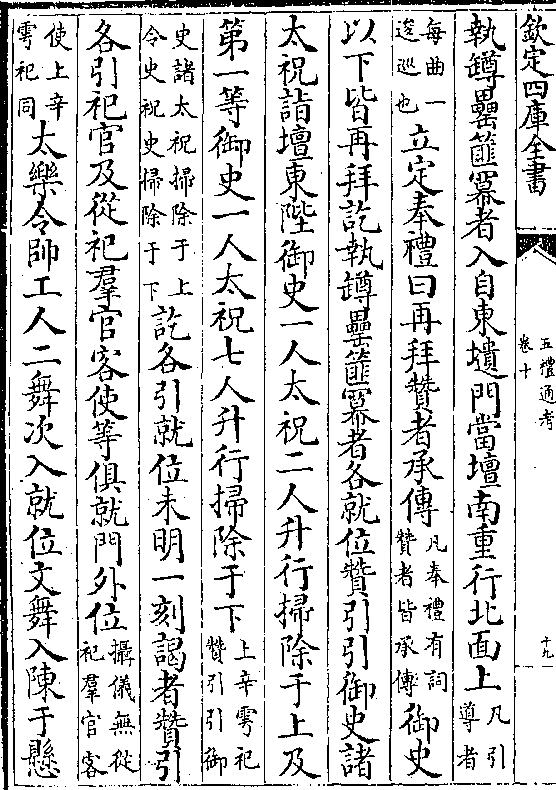 欽定四庫全書
五禮通考
卷十
十九
執罇罍篚冪者入自東壝門當壇南重行北面上凡引導者
每曲一逡巡也立定奉禮曰再拜贊者承傳凡奉禮有詞贊者皆承傳御史
以下皆再拜訖執罇罍篚冪者各就位贊引引御史諸
太祝詣壇東陛御史一人太祝二人升行掃除于上及
第一等御史一人太祝七人升行掃除于下上辛雩祀贊引引御
史諸太祝掃除于上令史祝史掃除于下訖各引就位未明一刻謁者贊引
各引祀官及從祀羣官客使等俱就門外位攝儀無從祀羣官客
使上辛雩祀同太樂令帥工人二舞次入就位文舞入陳于懸